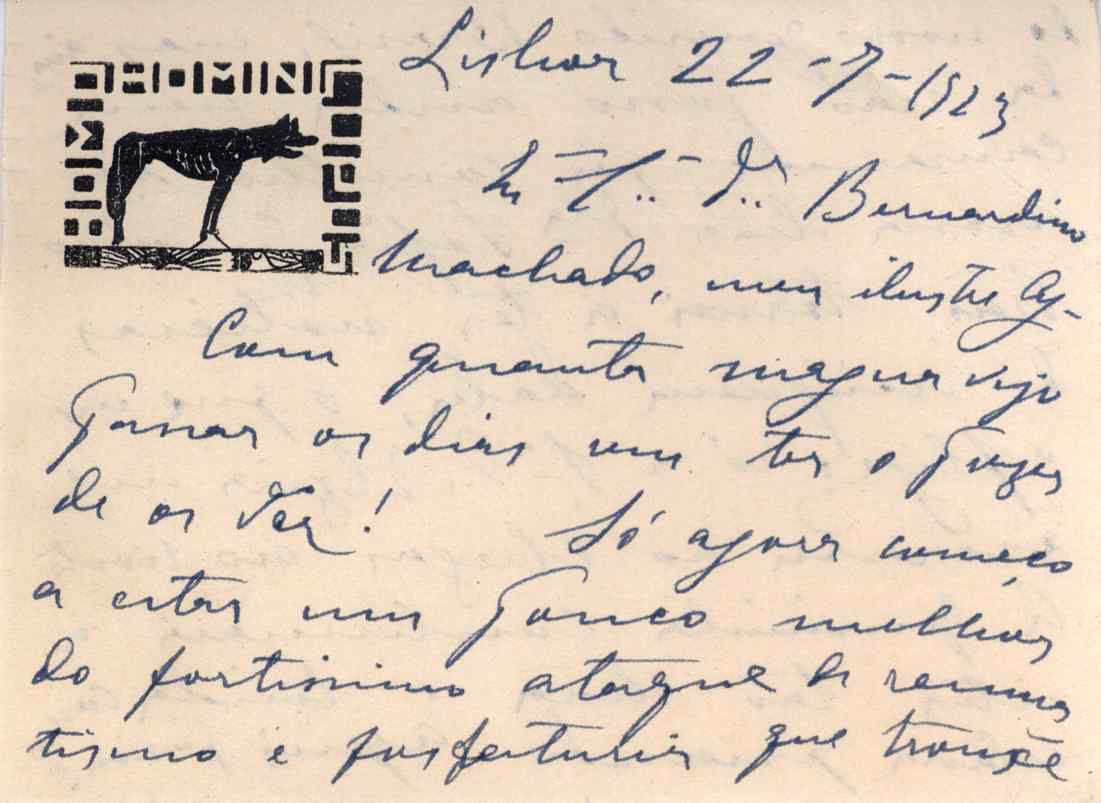 HOMO HOMINI LUPUS
Lisboa 22-7-1923
Bernardino
Machado, meu ilustre
Com quanta magua vejo
passar os dias sem ter o prazer
de os ver! Só agora começo
a estar um pouco melhor
do fortissimo ataque de reuma
tismo e fosfaturia que trouxe